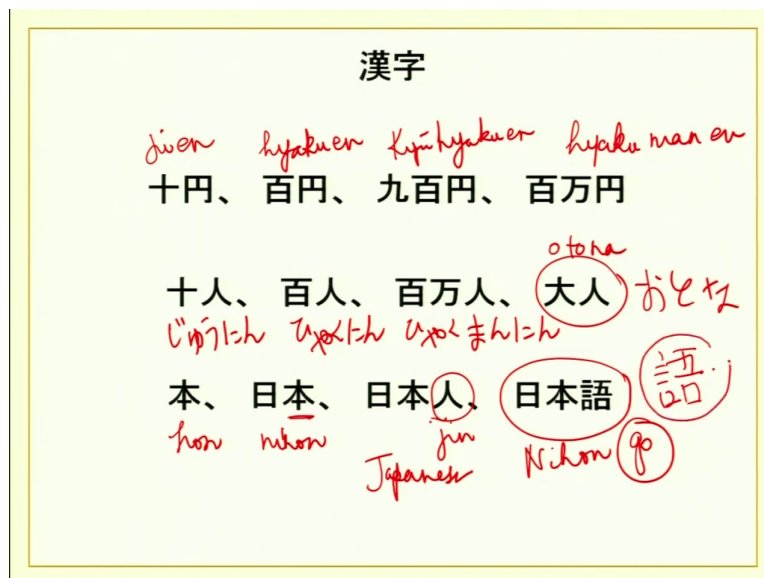 漢字
jūen hyakuen Kyūhyakuen hyaku man en
十円、 百円、 九百円、 百万円
otona
十人、 百人、 百万人、 大人 おとな
じゅうにん ひゃくにん ひゃくまんにん
本、 日本、 日本人、 日本語 語
hon nihon jin Nihon go
Japanese